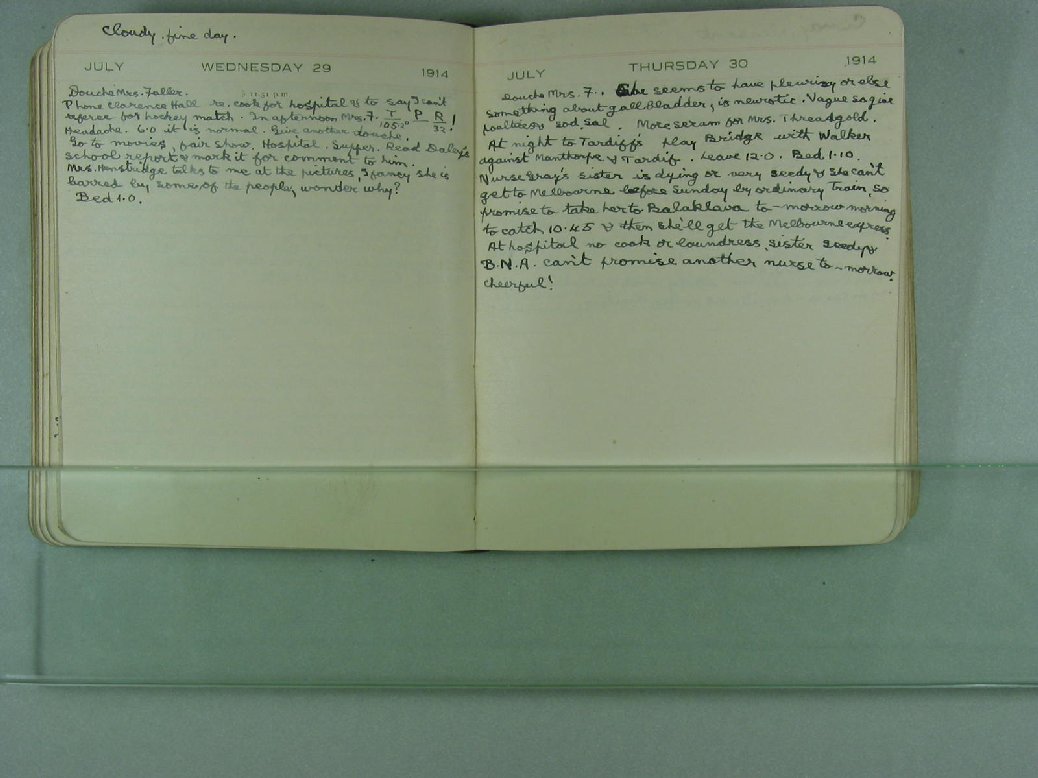 Cloudy. fine day.
JULY WEDNESDAY 29 1914
Douche Mrs. Faller.
Phone Clarence Hall re. cook for hospital & to say I can't
referee for hockey match. In afternoon Mrs. F. T P R
105.2° 32 !
Headache. 6.0 it is normal. Give another douche.
Go to movies, fair show. Hospital. Supper. Read Daley's
school reports & mark it for comment to him.
Mrs. Henstridge talks to me at the pictures, I fancy she is
barred by some of the people, wonder why?
Bed 1.0.
JULY THURSDAY 30 1914
Douche Mrs. F.. She seems to have pleurisy or else
something about gall bladder, is neurotic. Vague
poultices sod. sal. More serum for Mrs. Threadgold.
At night to Tardiff's play Bridge with Walker
against Manthorpe & Tardif. Leave 12.0. Bed 1.10.
Nurse Gray's sister is dying or very seedy & she can't
get to Melbourne before Sunday by ordinary train, so
promise to take her to Balaklava to-morrow morning
to catch 10.45 & then she'll get the Melbourne express
At hospital no cook or laundress, sister seedy &
B.N.A. can't promise another nurse to-morrow,
cheerful!